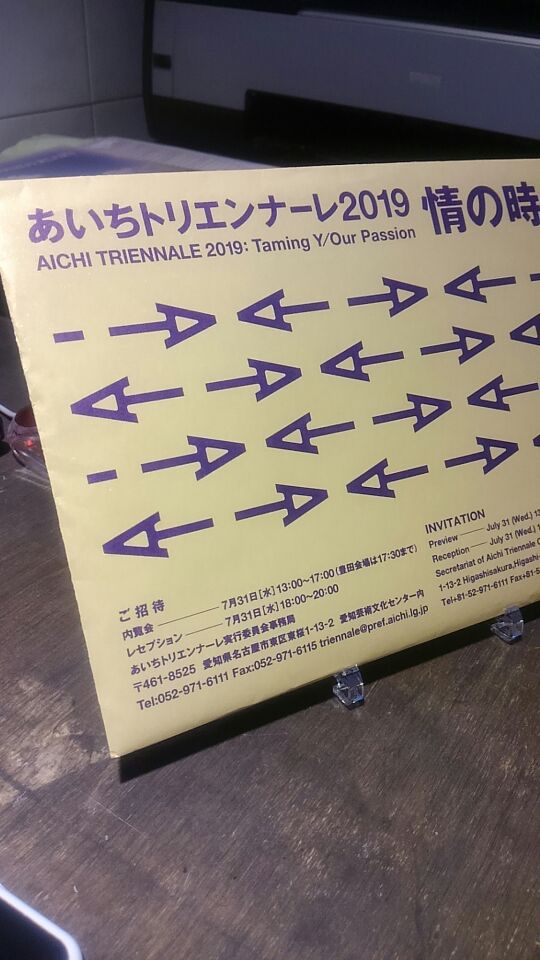 あいちトリエンナーレ2019 情の時
AICHI TRIENNALE 2019: Taming Y/Our Passion
ご招待
内覧会 ——— 7月31日[水] 13:00~17:00 (豊田会場は17:30まで)
レセプション —— 7月31日[水] 18:00~20:00
あいちトリエンナーレ実行委員会事務局
〒461-8525 愛知県名古屋市東区東桜1-13-2 愛知芸術文化センター内
Tel:052-971-6111 Fax:052-971-6115 triennale@pref.aichi.lg.jp
INVITATION
Preview —— July 31 (Wed.) 13
Reception —— July 31 (Wed.) 1
Secretariat of Aichi Triennale O
1-13-2 Higashisakura, Higashi-
Tel+81-52-971-6111 Fax+81-5